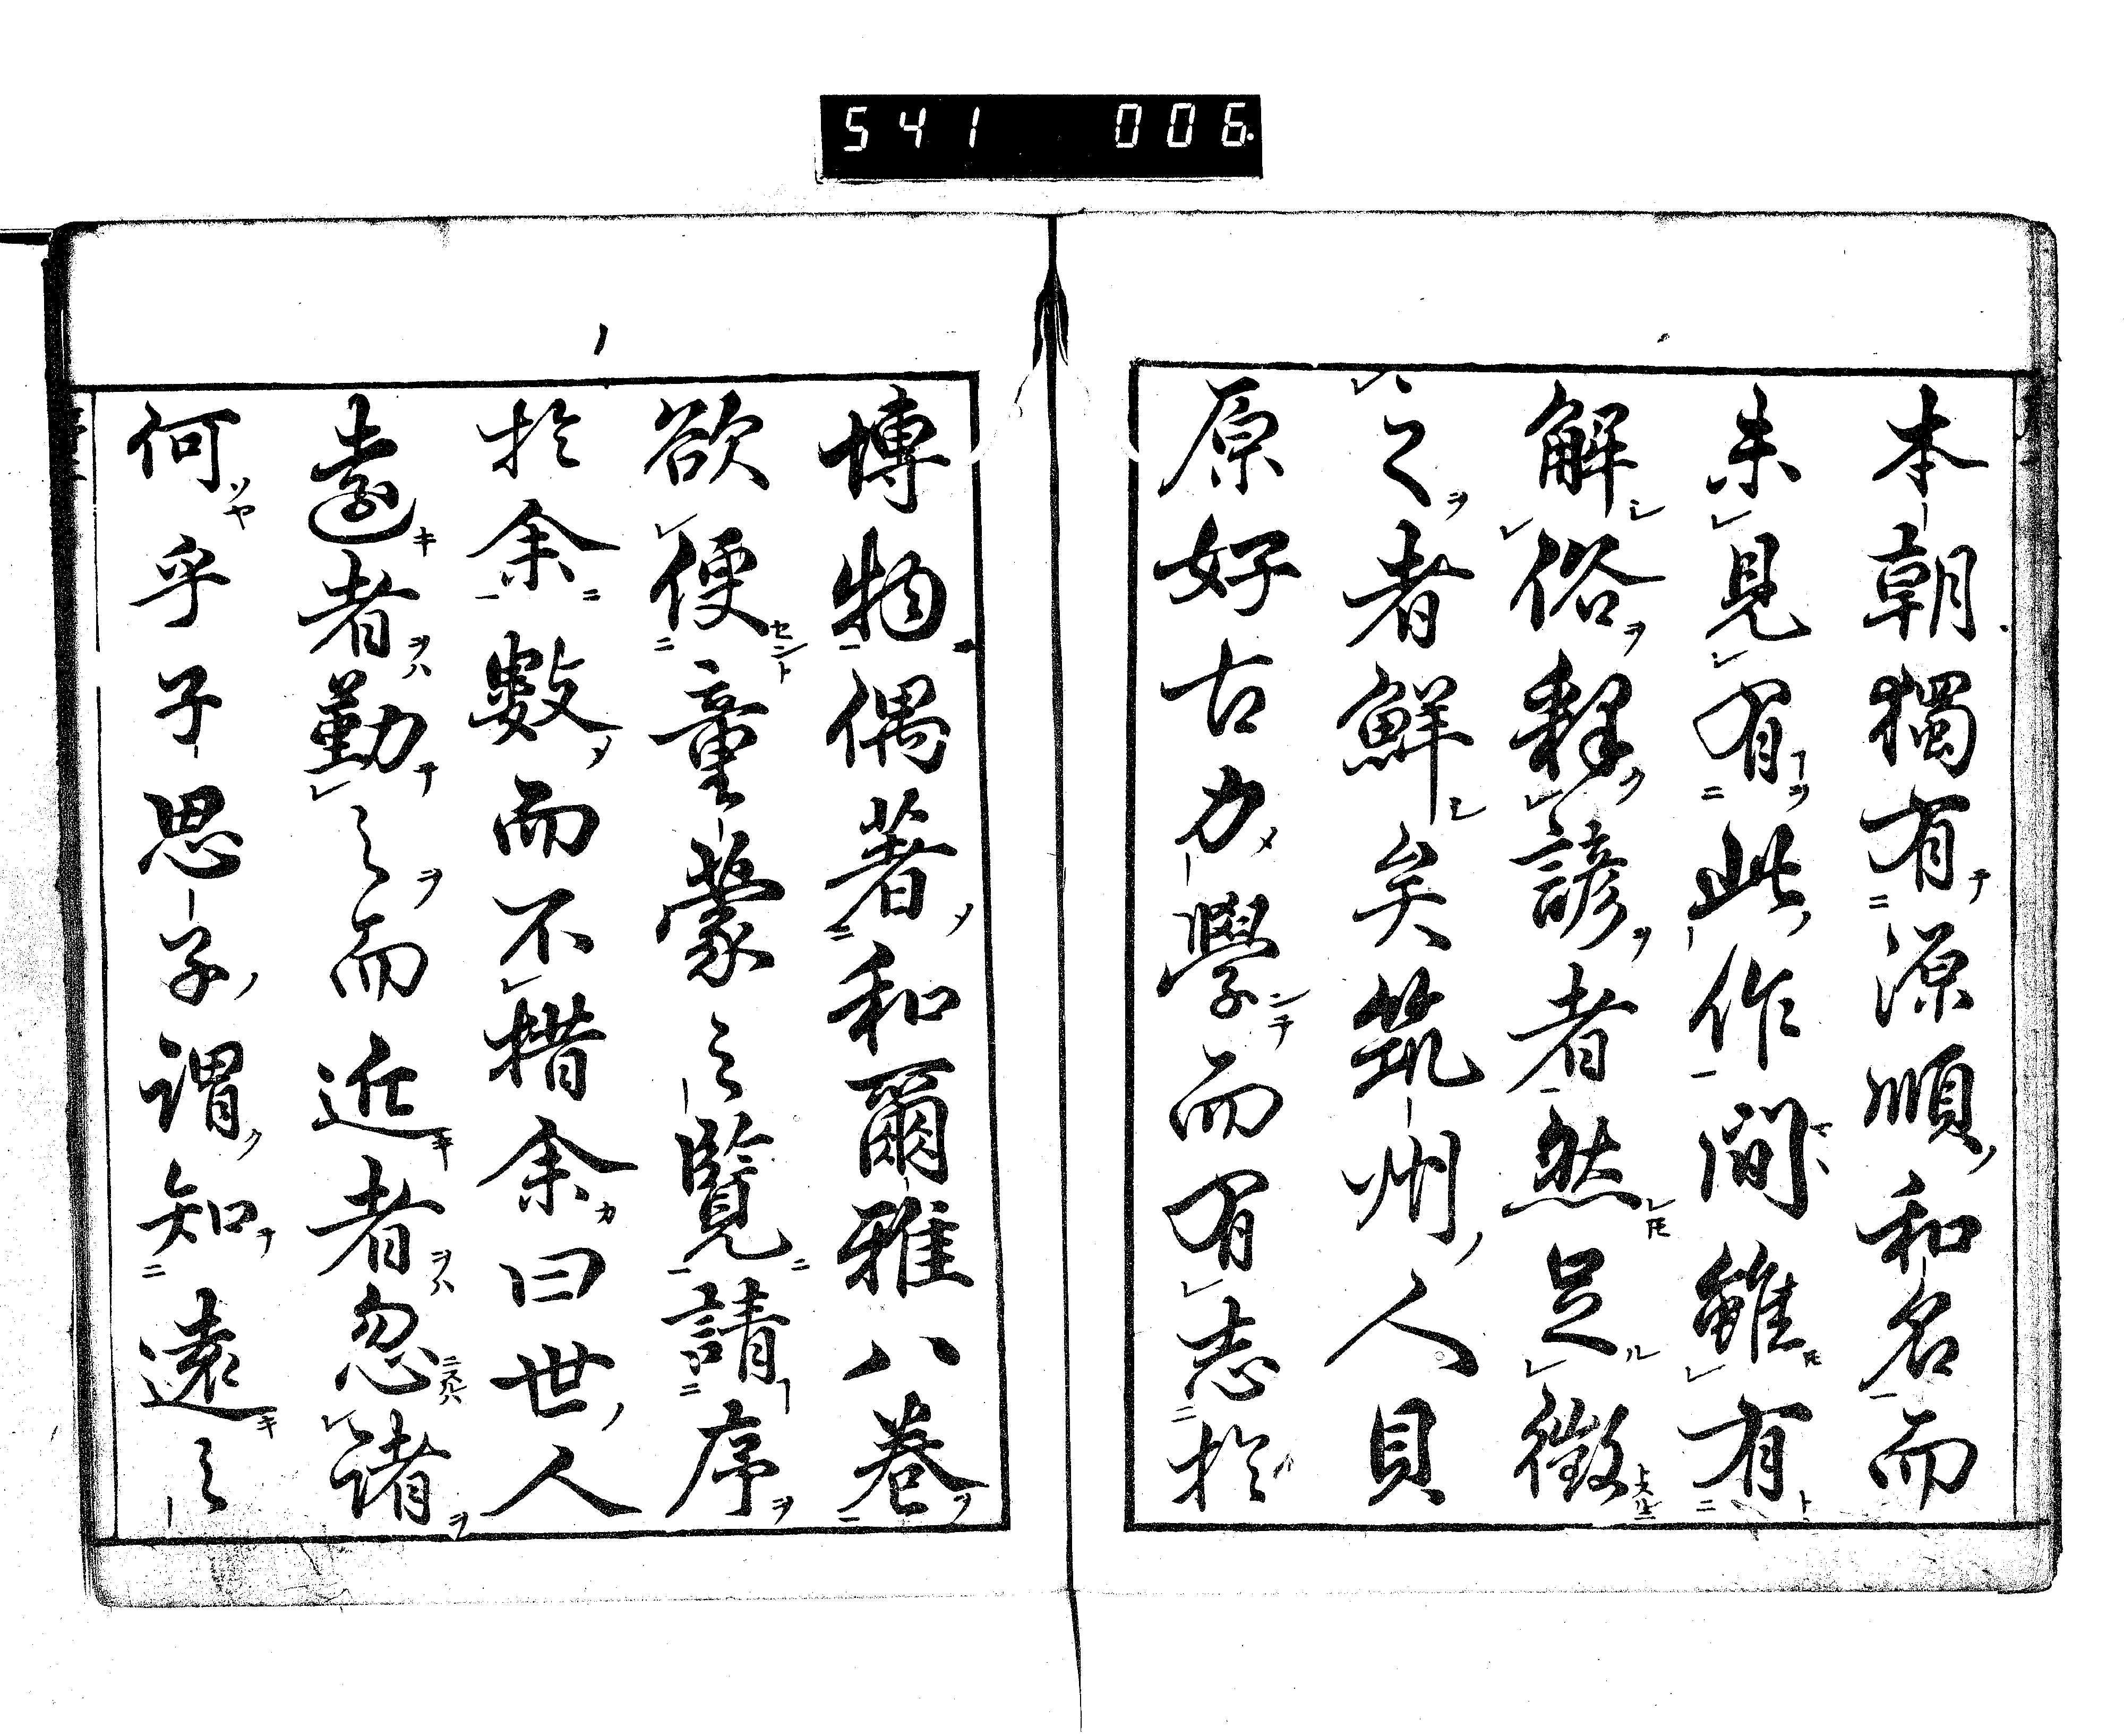 541 006
本朝獨有源順和名而
未見有此作間雖有
解俗釋諺者然足徵
之者鮮矣筑州人貝
原好古力學而有志於
博物偶著和爾雅八卷
欲便童蒙之覽請序
於余數而不措余曰世人
遠者勤之而近者忽諸
何乎子思子謂知遠之